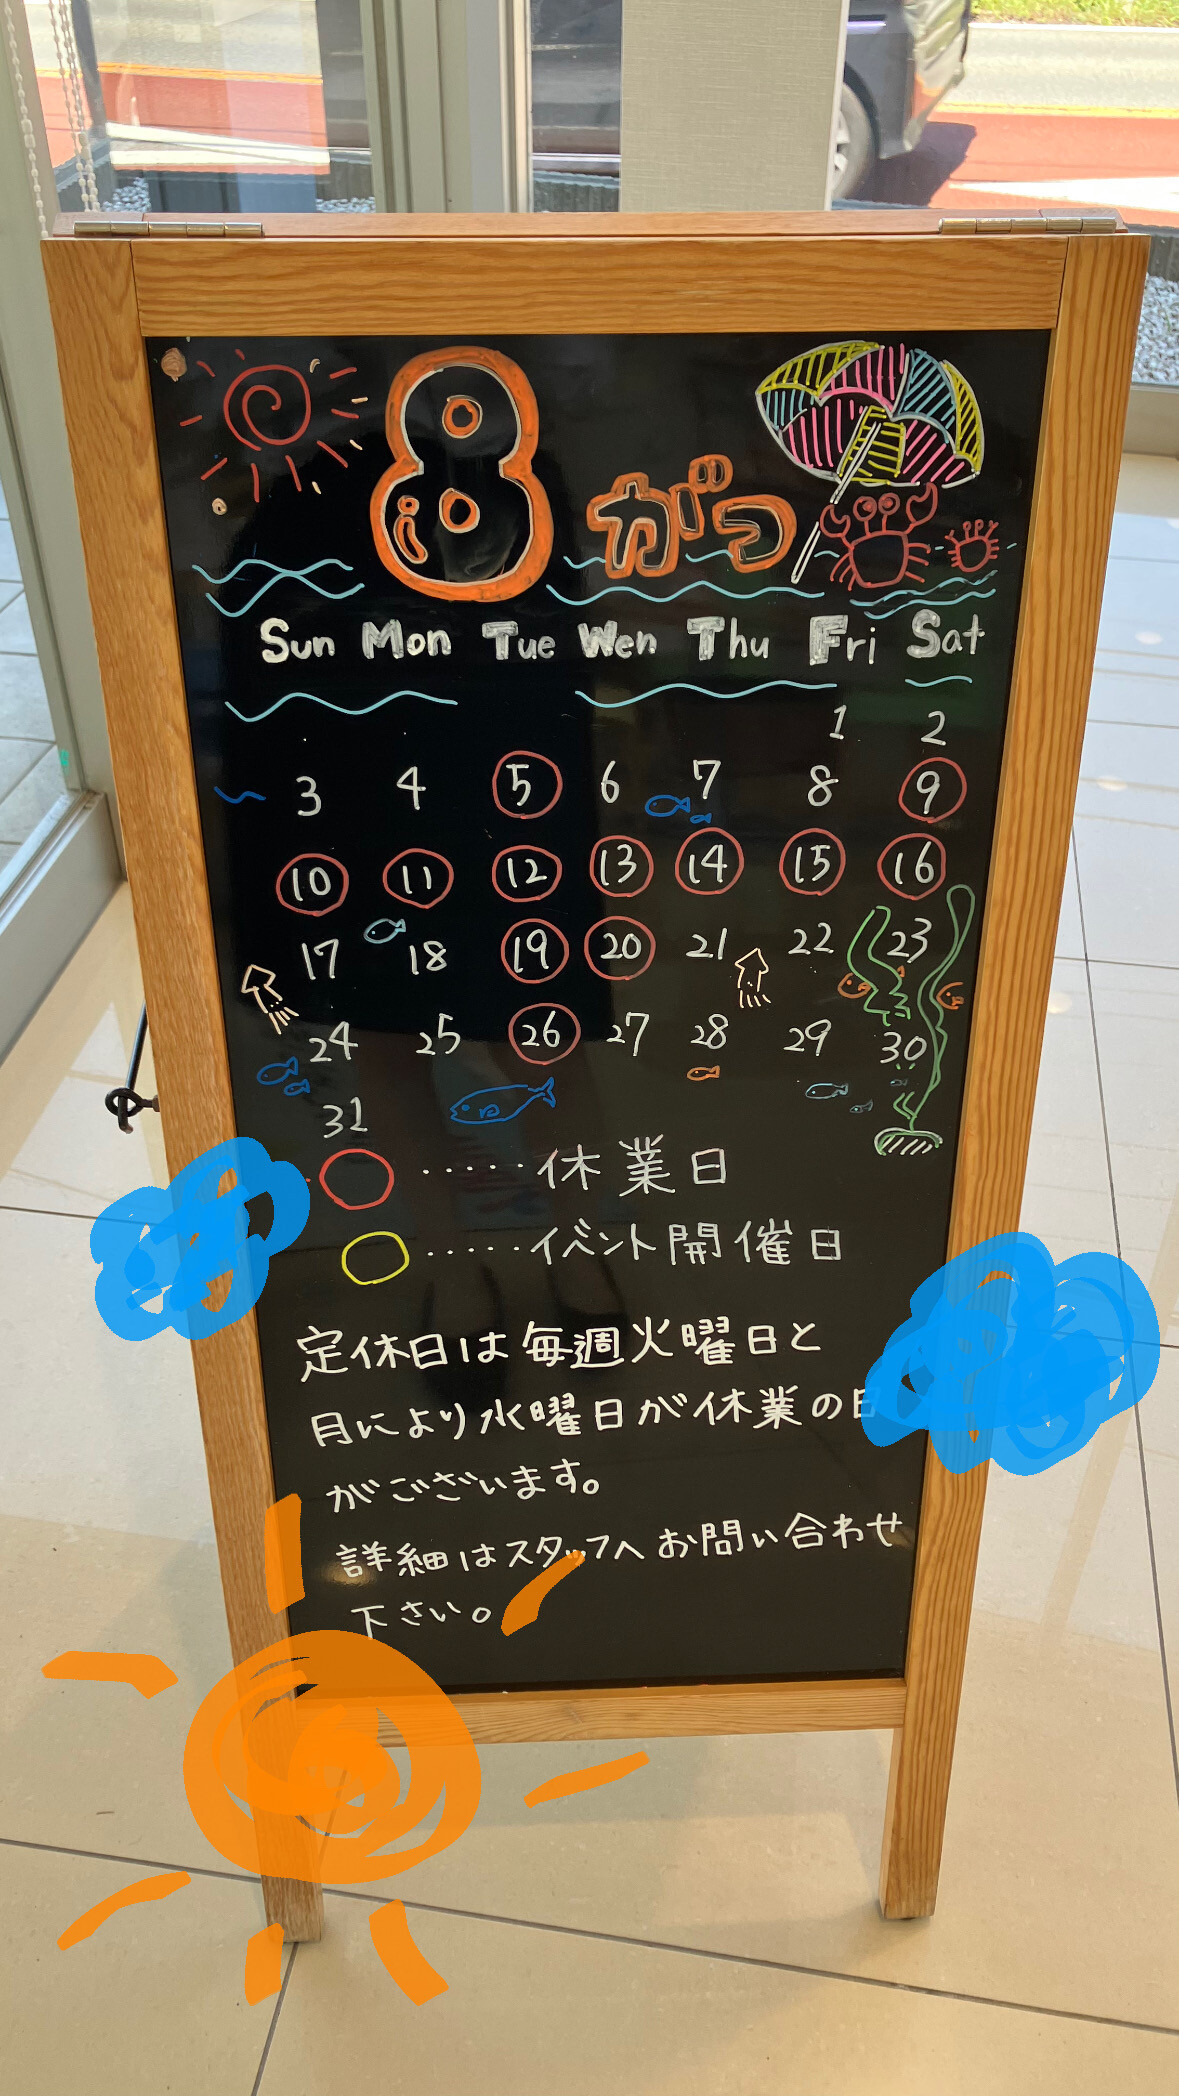 8がつ
Sun Mon Tue Wen Thu Fri Sat
1 2
3 4 5 6 7 8 9
10 11 12 13 14 15 16
17 18 19 20 21 22 23
24 25 26 27 28 29 30
31
······休業日
······イベント開催日
定休日は毎週火曜日と
月により水曜日が休業の日
がございます。
詳細はスタッフへお問い合わせ
下さい。